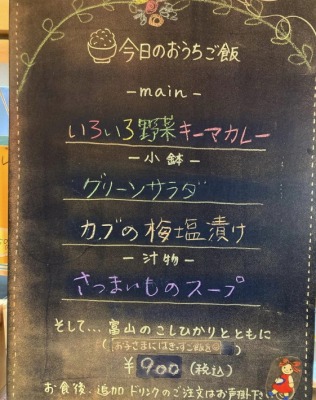 今日のおうちご飯
-main-
いろいろ野菜キーマカレー
-小鉢-
グリーンサラダ
カブの梅塩漬け
-汁物-
さつまいものスープ
そして…富山のこしひかりとともに
¥900(税込)
お食後、追加ドリンクのご注文はお声掛け下